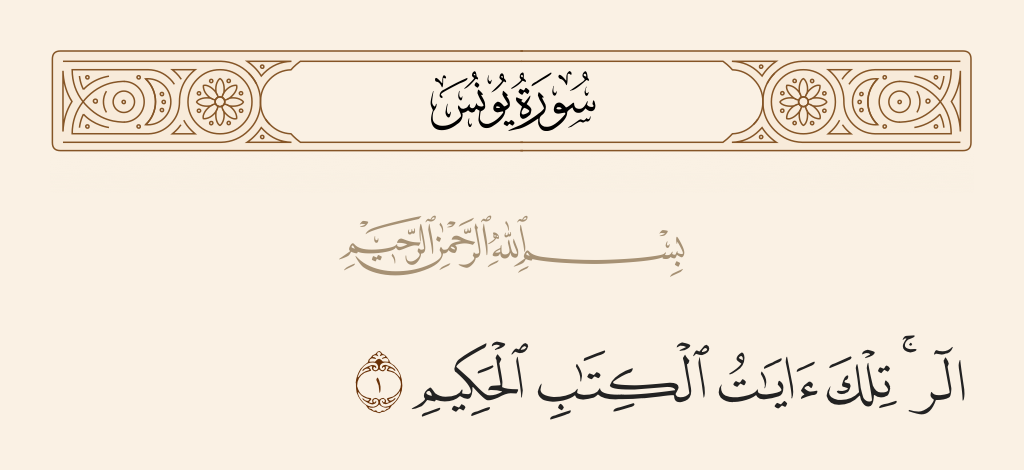 سُورَةُ يُونُسَ
بِسْمِ ٱللَّهِ ٱلرَّحْمَٰنِ ٱلرَّحِيمِ
الٓر ۚ تِلْكَ ءَايَـٰتُ ٱلْكِتَـٰبِ ٱلْحَكِيمِ ١